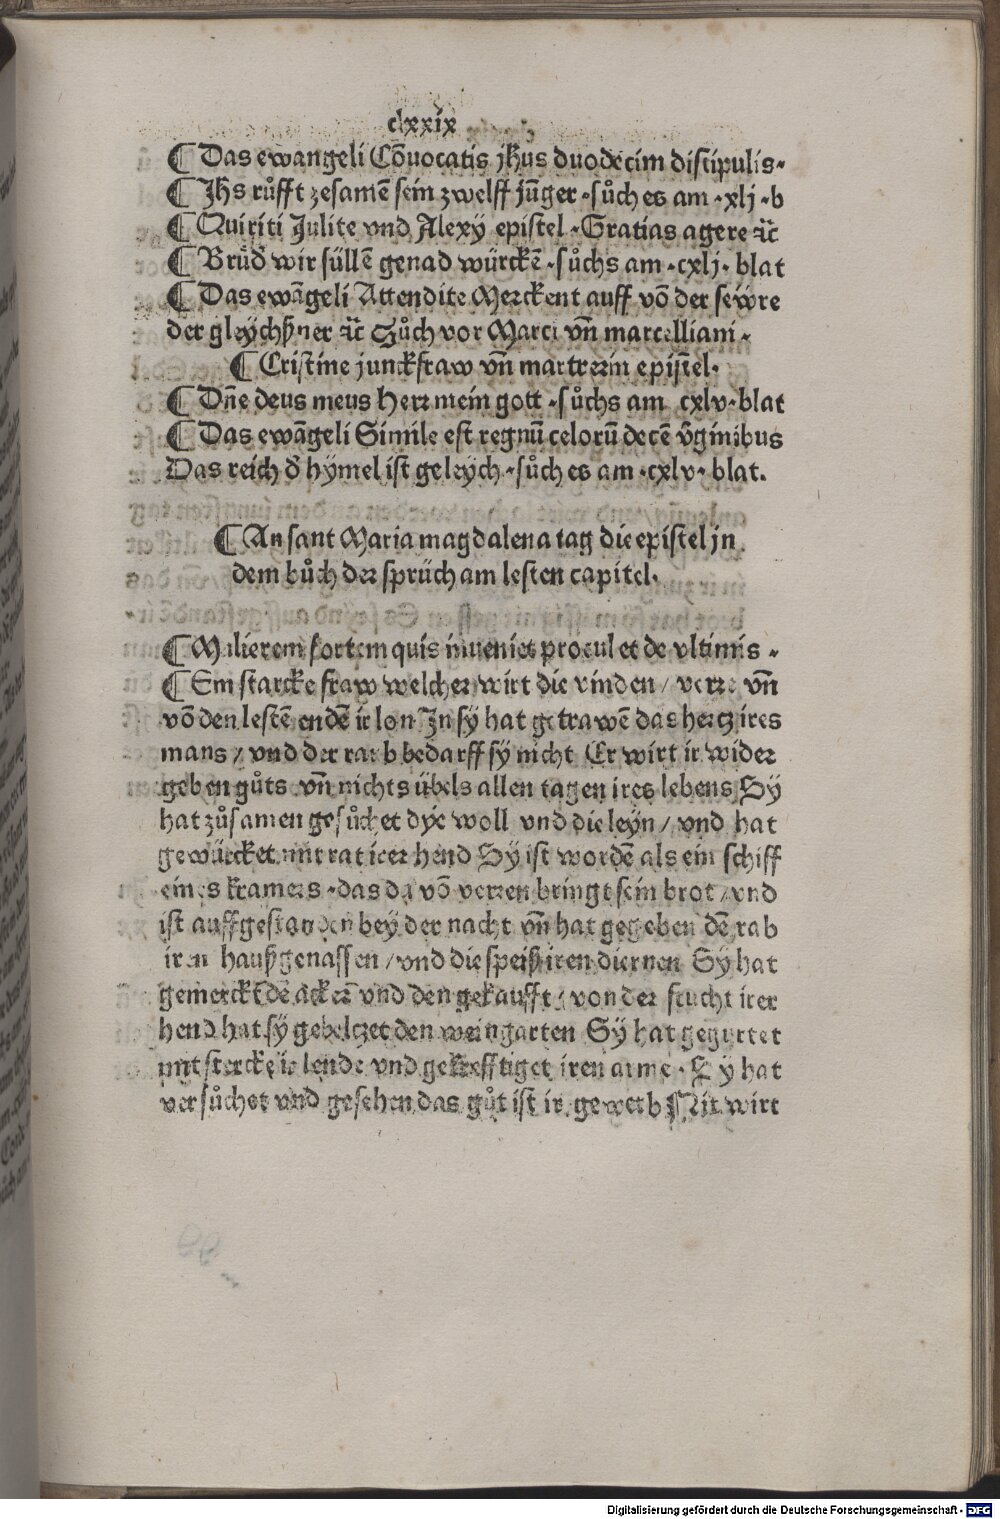 clxxix
¶ Das ewangeli Cōuocatis jhūs duodecim discipulis·
¶ Jhs růfft zesamē sein zwelff jūnger·sůch es am·xlj·b
¶ Quiriti Julite vnd Alexÿ epistel·Gratias agere ꝛc̈
¶ Brüd̓ wir süllē genad würckē·sůchs am·cxlj·blat
¶ Das ewāgeli Attendite Merckent auff vō der sewre
der gleÿchßner ꝛc̈ Sůch vor Marci vn̄ marcelliani·
¶ Cristine junckfraw vn̄ martrerin epistel·
¶ Dn̄e deus meus Herr mein gott·sůchs am cxlv·blat
¶ Das ewāgeli Simile est regnū celorū decē v̓ginibus
Das reich d̓ hÿmel ist geleÿch·sůch es am·cxlv·blat.
¶ An sant Maria magdalena tag die epistel jn
dem bůch der sprüch am lesten capitel·
¶ Mulierem fortem quis inueniet procul et de vltimis·
¶ Ein starcke fraw welcher wirt die vinden/verre vn̄
vō den lestē endē ir lon Jn sÿ hat getrawē das hertz ires
mans/vnd der raub bedarff sÿ nicht Er wirt ir wider
geben gůts vn̄ nichts übels allen tagen ires lebens Sÿ
hat zůsamen gesůchet dÿe woll vnd die leÿn/vnd hat
gewürcket mit rat irer hend Sÿ ist wordē als ein schiff
eines kramers·das da vō verren bringt sein brot/vnd
ist auffgestanden beÿ der nacht vn̄ hat gegeben dē rab
iren haußgenassen/vnd die speiß iren diernen Sÿ hat
gemerckt dē acker vnd den gekaufft/von der frucht irer
hend hat sÿ gebeltzet den weingarten Sÿ hat gegurtet
mit stercke ir lende vnd gekrefftiget iren arme·Sÿ hat
versůchet vnd gesehen das gůt ist ir gewerb Nit wirt
Digitalisierung gefördert durch die Deutsche Forschungsgemeinschaft - DFG